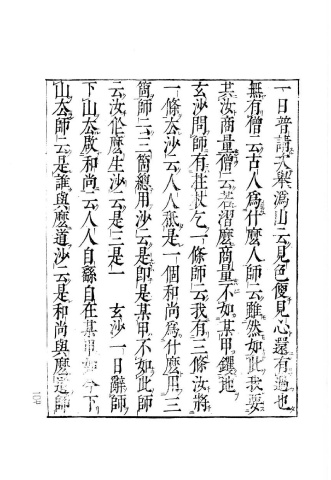 一日普請大眾溈山云見色便見心還有過也
無有僧云古人爲什麽人師云雖然如此我要
共汝商量僧云若𭣣麽商量不如某甲钁地
玄沙問師有拄杖乞一條師云我有三條汝將
一條去沙云人人祇是一個和尚爲什麽用三
箇師云三箇總用沙云是卽是某甲不如此師
云汝作麽生沙云是三是一 玄沙一日辭師
下山去啟和尚云人人自繇自在某甲如今下
山去師云是誰與麽道沙云是和尚與麽道師